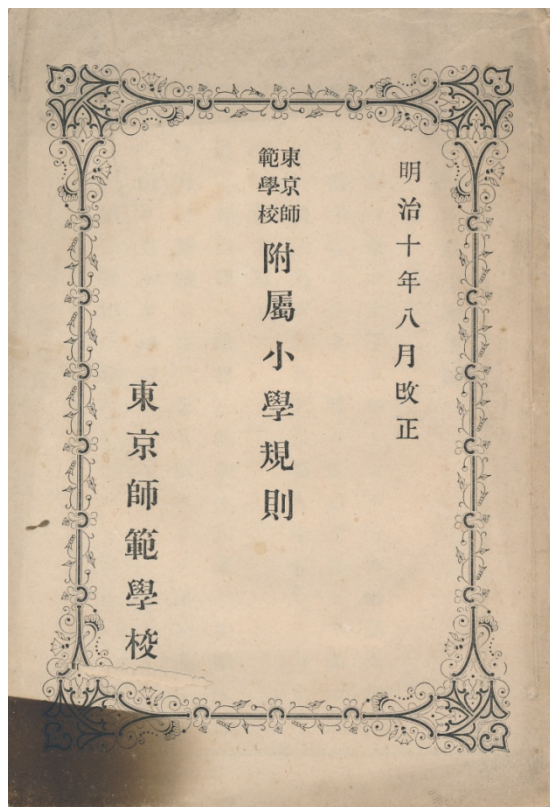 明治十年八月改正
東京師
範學校
附屬小學規則
東京師範學校